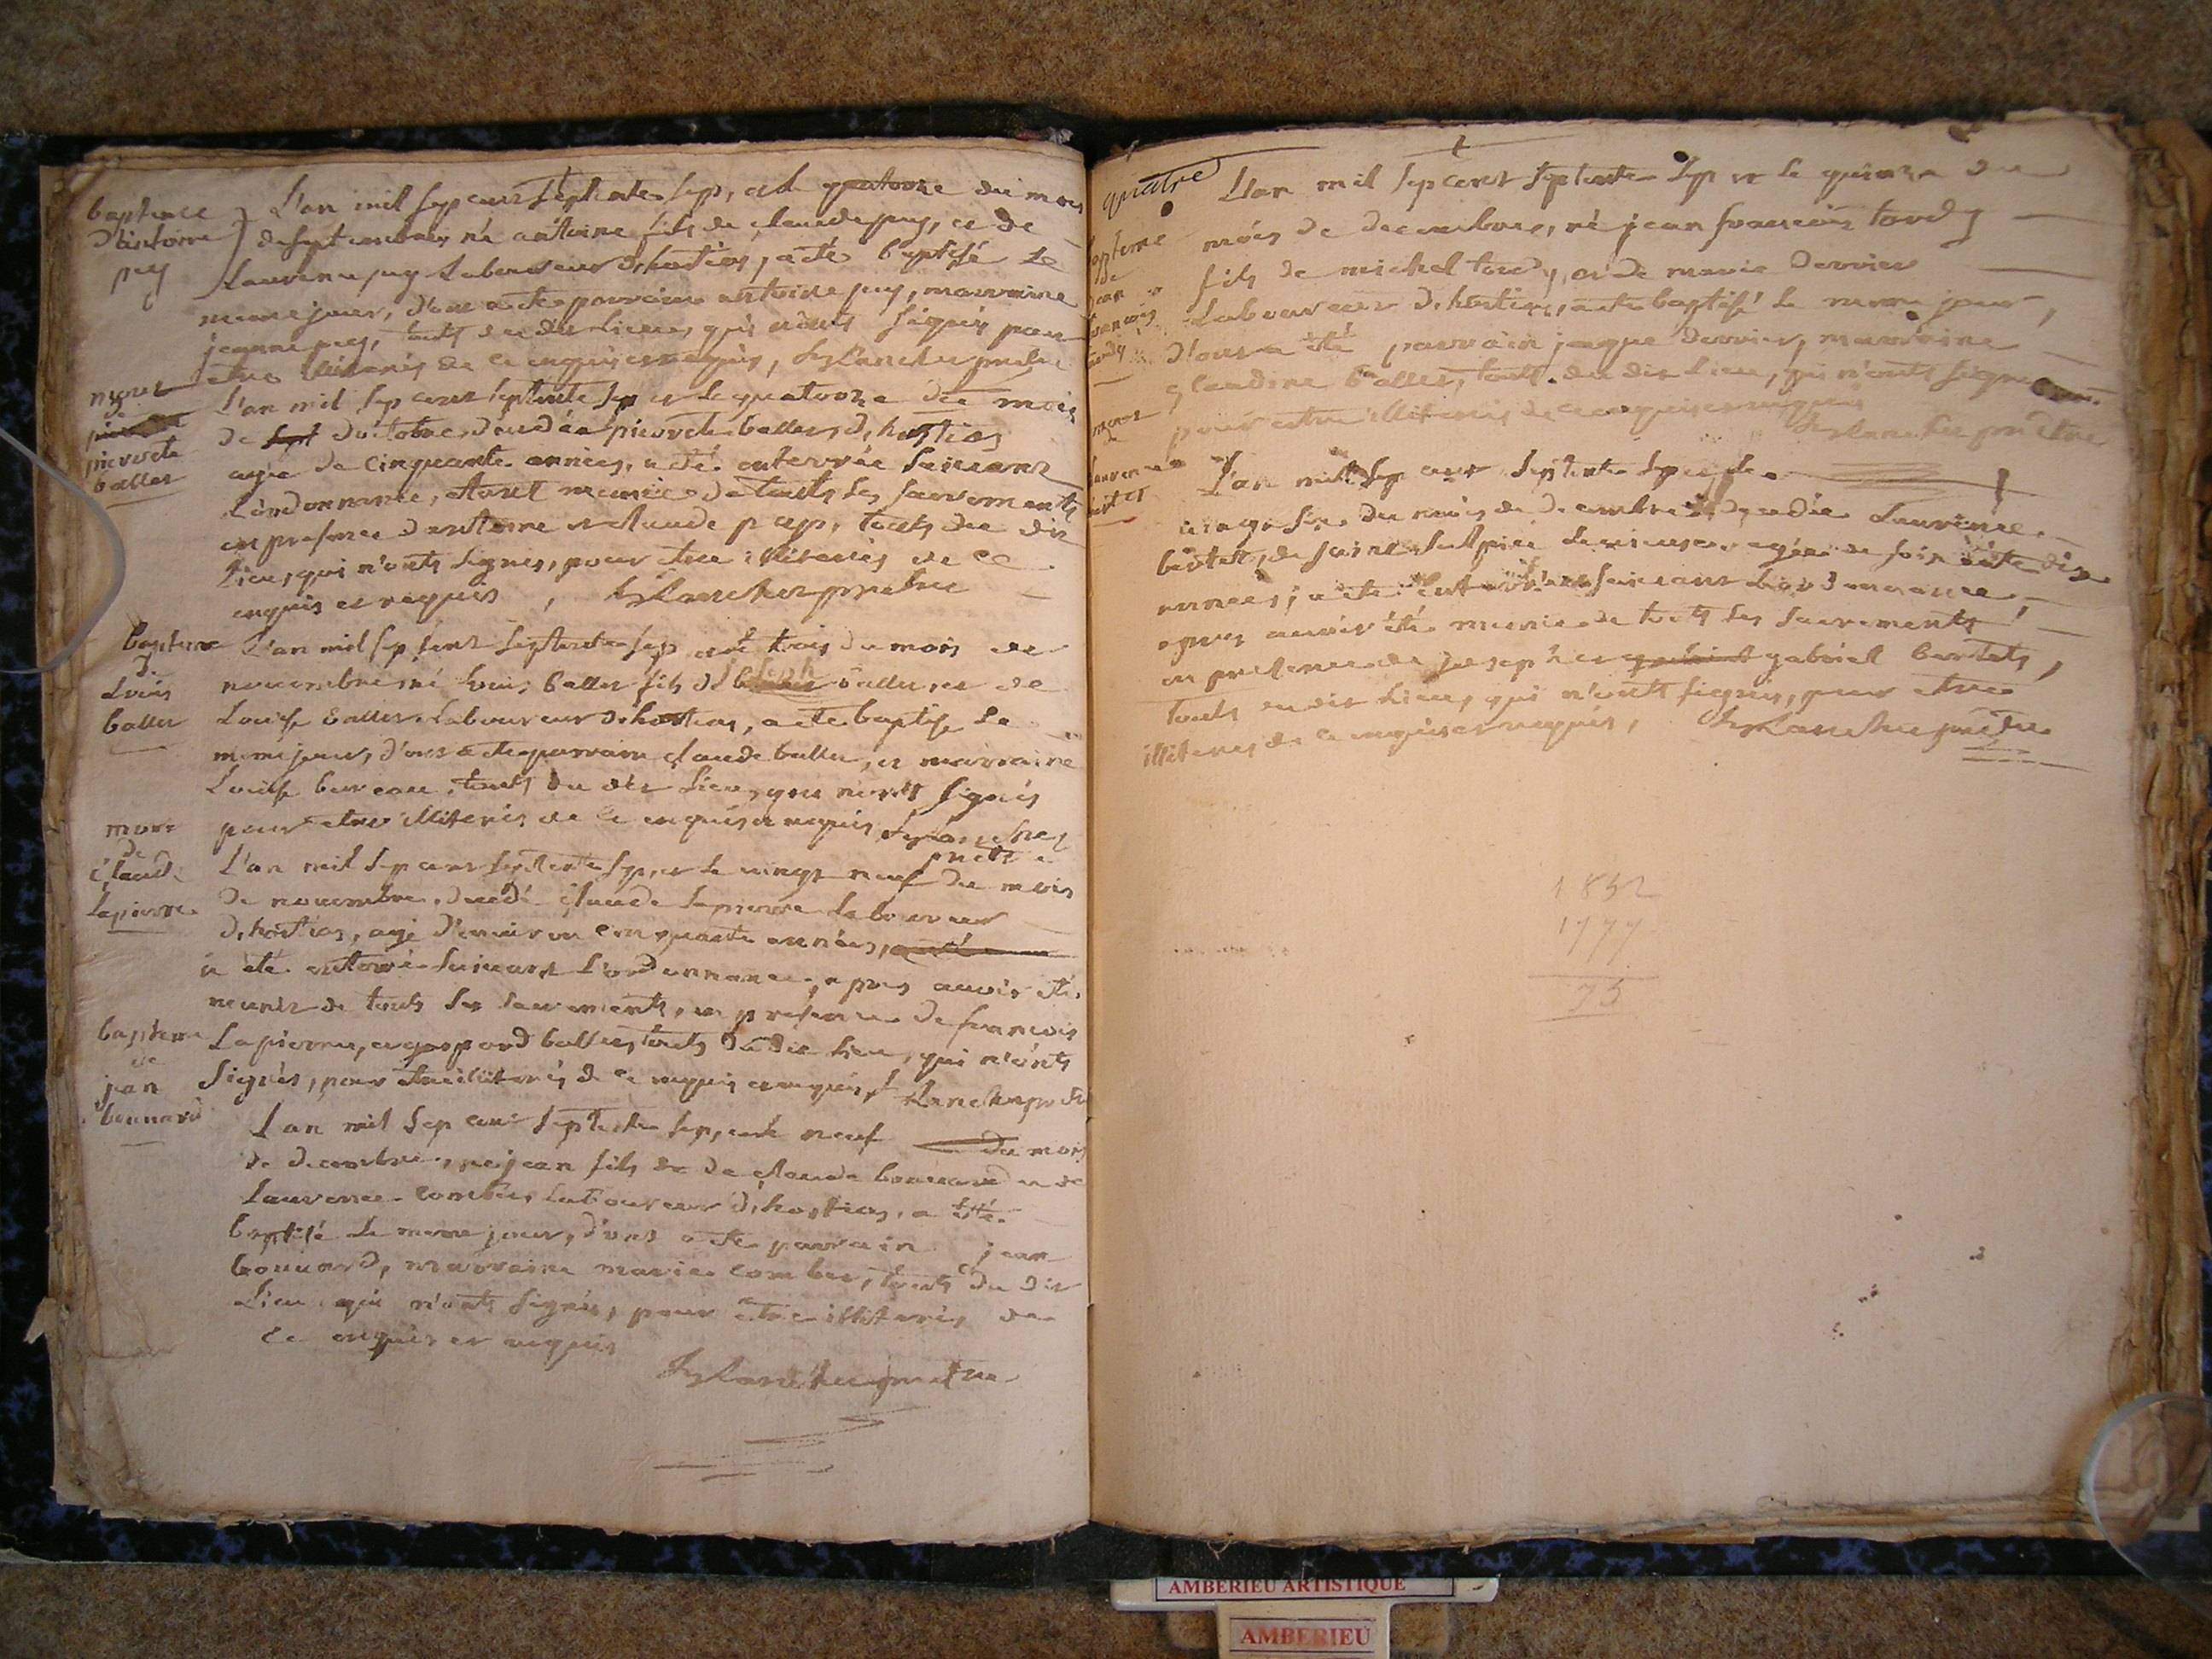 baptême
d'antoine
puy
L'an mil sept cent septente sep, et le quatorze du mois
de septembre, né antoine fils de claude puy, et de
Laurence puy Laboureur d'hostias, a été baptisé le
meme jour, d'ont a été parrain antoine puy, marraine
jeanne puy, touts du dit Lieu, qui n'onts signés pour
etre illiterés de ce enquis et requis, prêtre
mort
de
pierrete
baller
L'an mil sep cent septente sep et le quatorze du mois
de d'octobre, décédéé pierrete baller, d'hostias
agée de cinquante années, a été enterrée suivant
L'ordonnance, etant munie de touts les sacrements
en presence d'antoine et claude puy, touts du dit
Lieu, qui n'onts signés, pour etre illiterés de ce
enquis et requis, prêtre
baptême
de
Louis
baller
L'an mil sep cent septente sep et le trois du mois de
novembre né Louis baller fils de joseph baller et de
Louise baller Laboureur d'hostias, a été baptisé le
meme jour, d'ont a été parrain claude baller, et marraine
Louise bureau, touts du dit Lieu, qui n'onts signés
pour etre illiterés de ce enquis et requis
prêtre
mort
de
claude
Lapierre
L'an mil sep cent septente sep, et le vingt neuf du mois
de novembre, décédé claude Lapierre Laboureur
d'hostias, agé d'environ cinquante années,
a été enterré suivant L'ordonnance, apres avoir été
munis de touts les sacrements, en presence de francois
Lapierre, et gaspard baller, touts du dit Lieu, qui n'onts
signés, pour etre illiterés de ce enquis et requis,
baptême
de
jean
bouvard
L'an mil sep cent septente sep, et le neuf du mois
de decembre, né jean fils de de claude bouvard et de
Laurence combet, Laboureur d'hostias, a été
baptisé le meme jour, d'ont a été parrain jean
bouvard, marraine marie combet, touts du dit
Lieu qui n'onts signés, pour etre illiterés de
ce enquis et requis
prêtre
quatre
L'an mil sep cent septente sep et le quinze du
mois de decembre, né jean francois tardy
fils de michel tardy, et de marie dervier
Laboureur d'hostias, a été baptisé le meme jour,
d'ont a été parrain jaque dervier, marraine
claudine baller, touts du dit Lieu, qui n'onts signé
pour etre illiterés de ce enquis et requis
prêtre
mort
de
Laurence
L'an mil sep cent septente sep et le
vingt six du mois de decembre décédée Laurence
bertet, de saint Sulpice
années, a été enterrée suivant L'ordonnance,
apres avoir été munie de touts les sacrements,
en presence de joseph et gabriel bertets,
touts du dit Lieu, qui n'onts signés, pour etre
illiterés de ce enquis et requis, prêtre
1852
1777
75
AMBERIEU ARTISTIQUE
AMBERIEU